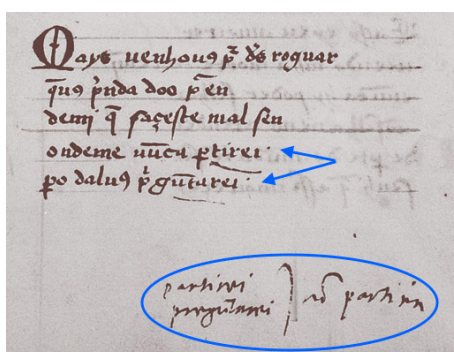 Mays uenhouꝰ p̃ d̃s roguar
q̃uꝰ p̃nda doo p̃ en
demi q̃ façeste mal sen
ondeme nũca ꝑtirei
ꝑo daluꝰ p̃gũtarei
partirei
pregũtarei
ad partir